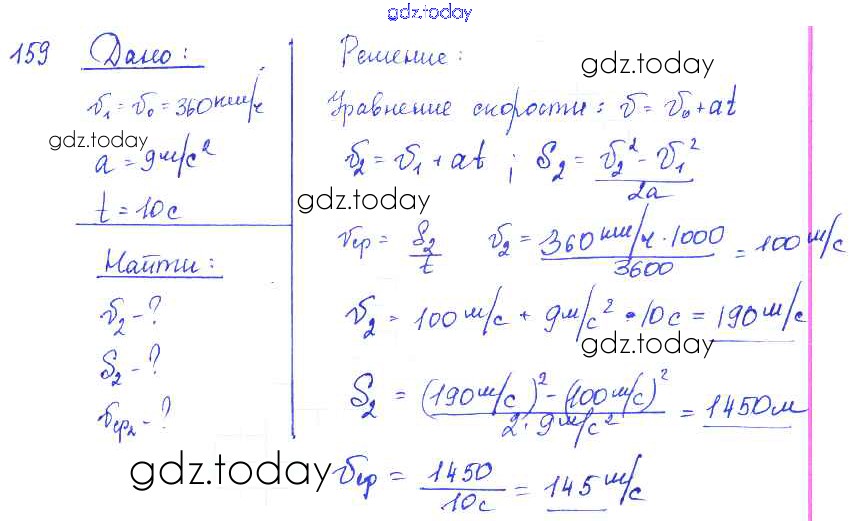 gdz.today
159 Дано:
v₁ = v₀ = 360 км/ч
gdz.today
a = 9 м/с²
t = 10 с
Найти:
v₂ - ?
S₂ - ?
vср₂ - ?
Решение:
gdz.today
Уравнение скорости: v = v₀ + at
v₂ = v₁ + at ; S₂ = (v₂² - v₁²) / 2a
gdz.today
vср = S₂ / t v₂ = 360 км/ч · 1000 / 3600 = 100 м/с
v₂ = 100 м/с + 9 м/с² · 10 с = 190 м/с
gdz.today
S₂ = ((190 м/с)² - (100 м/с)²) / 2 · 9 м/с² = 1450 м
gdz.today
vср = 1450 / 10 с = 145 м/с